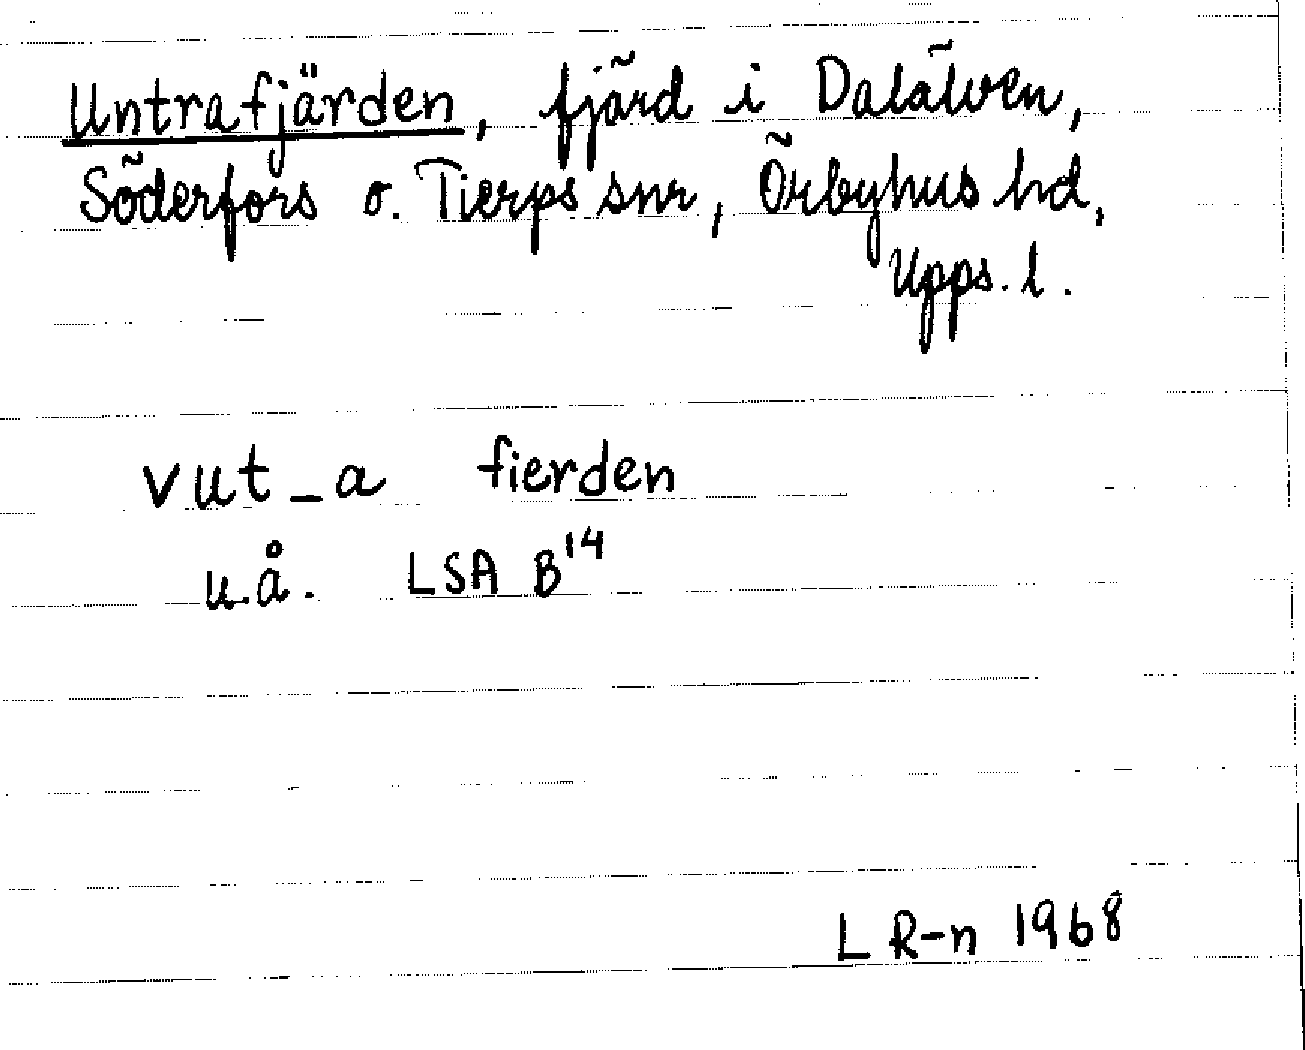 Untrafjärden, fjärd i Dalälven,
Söderfors o. Tierps snr, Örbyhus hd,
Upps. l.
vut_a fierden
u.å. LSA B¹⁴
L R-n 1968